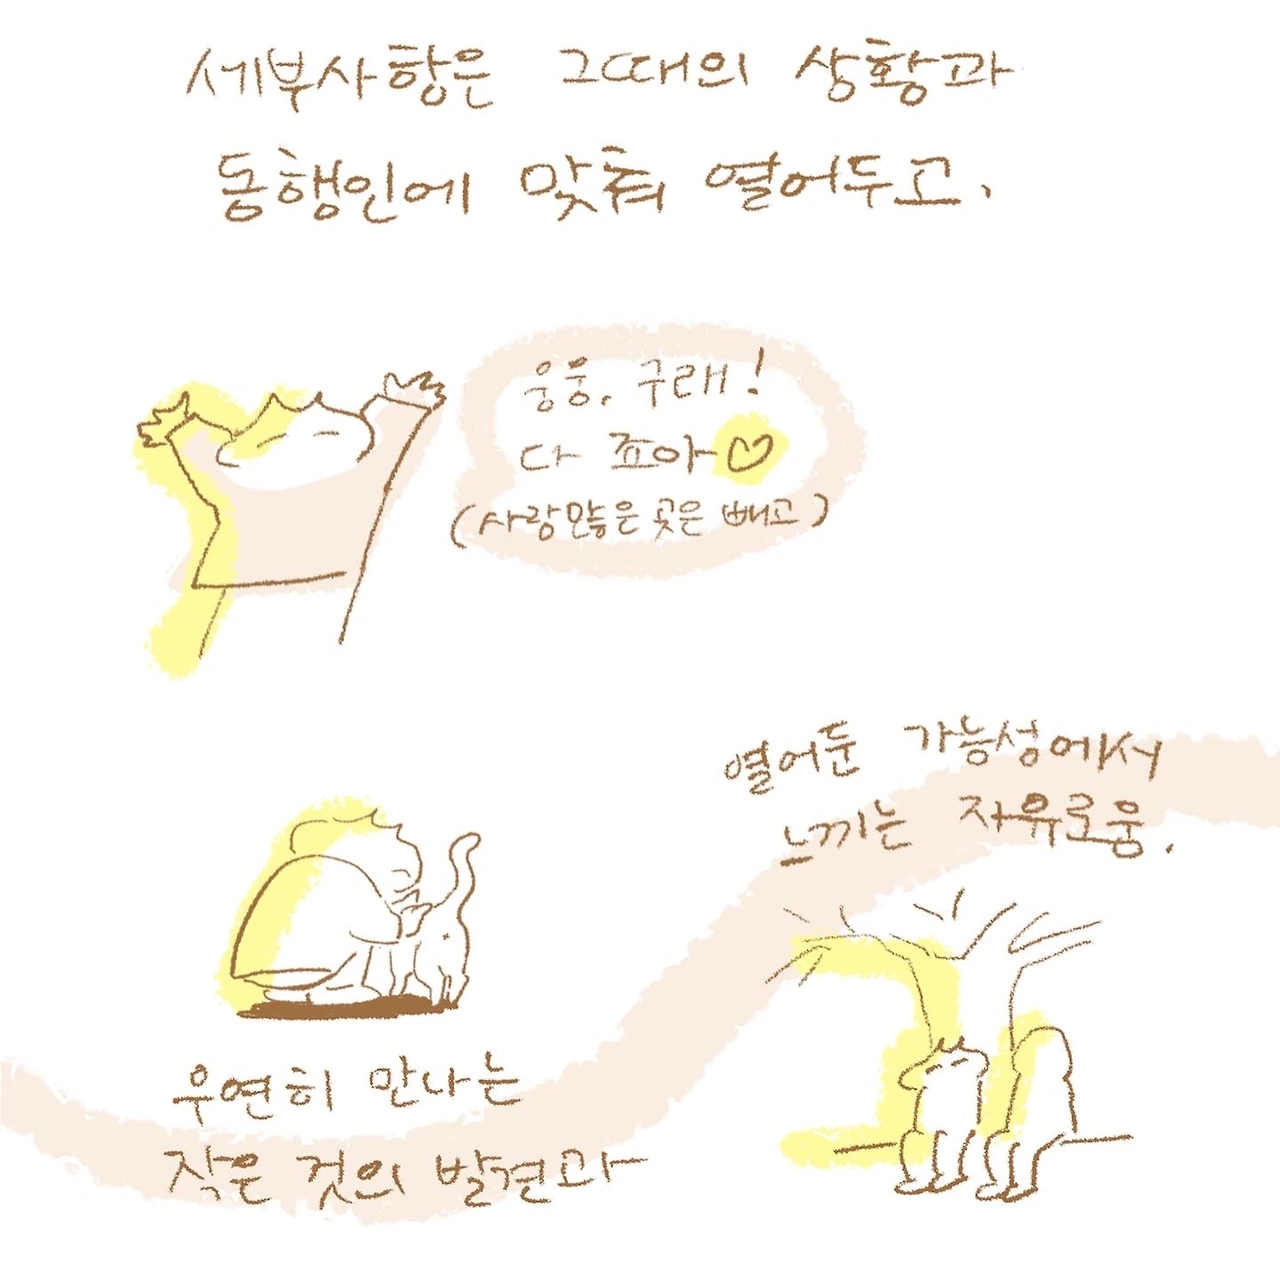 세부사항은 그때의 상황과
동행인에 맞춰 열어두고.
웅웅. 구래!
다 죠아♡
(사람많은 곳은 빼고)
우연히 만나는
작은 것의 발견과
열어둔 가능성에서
느끼는 자유로움.